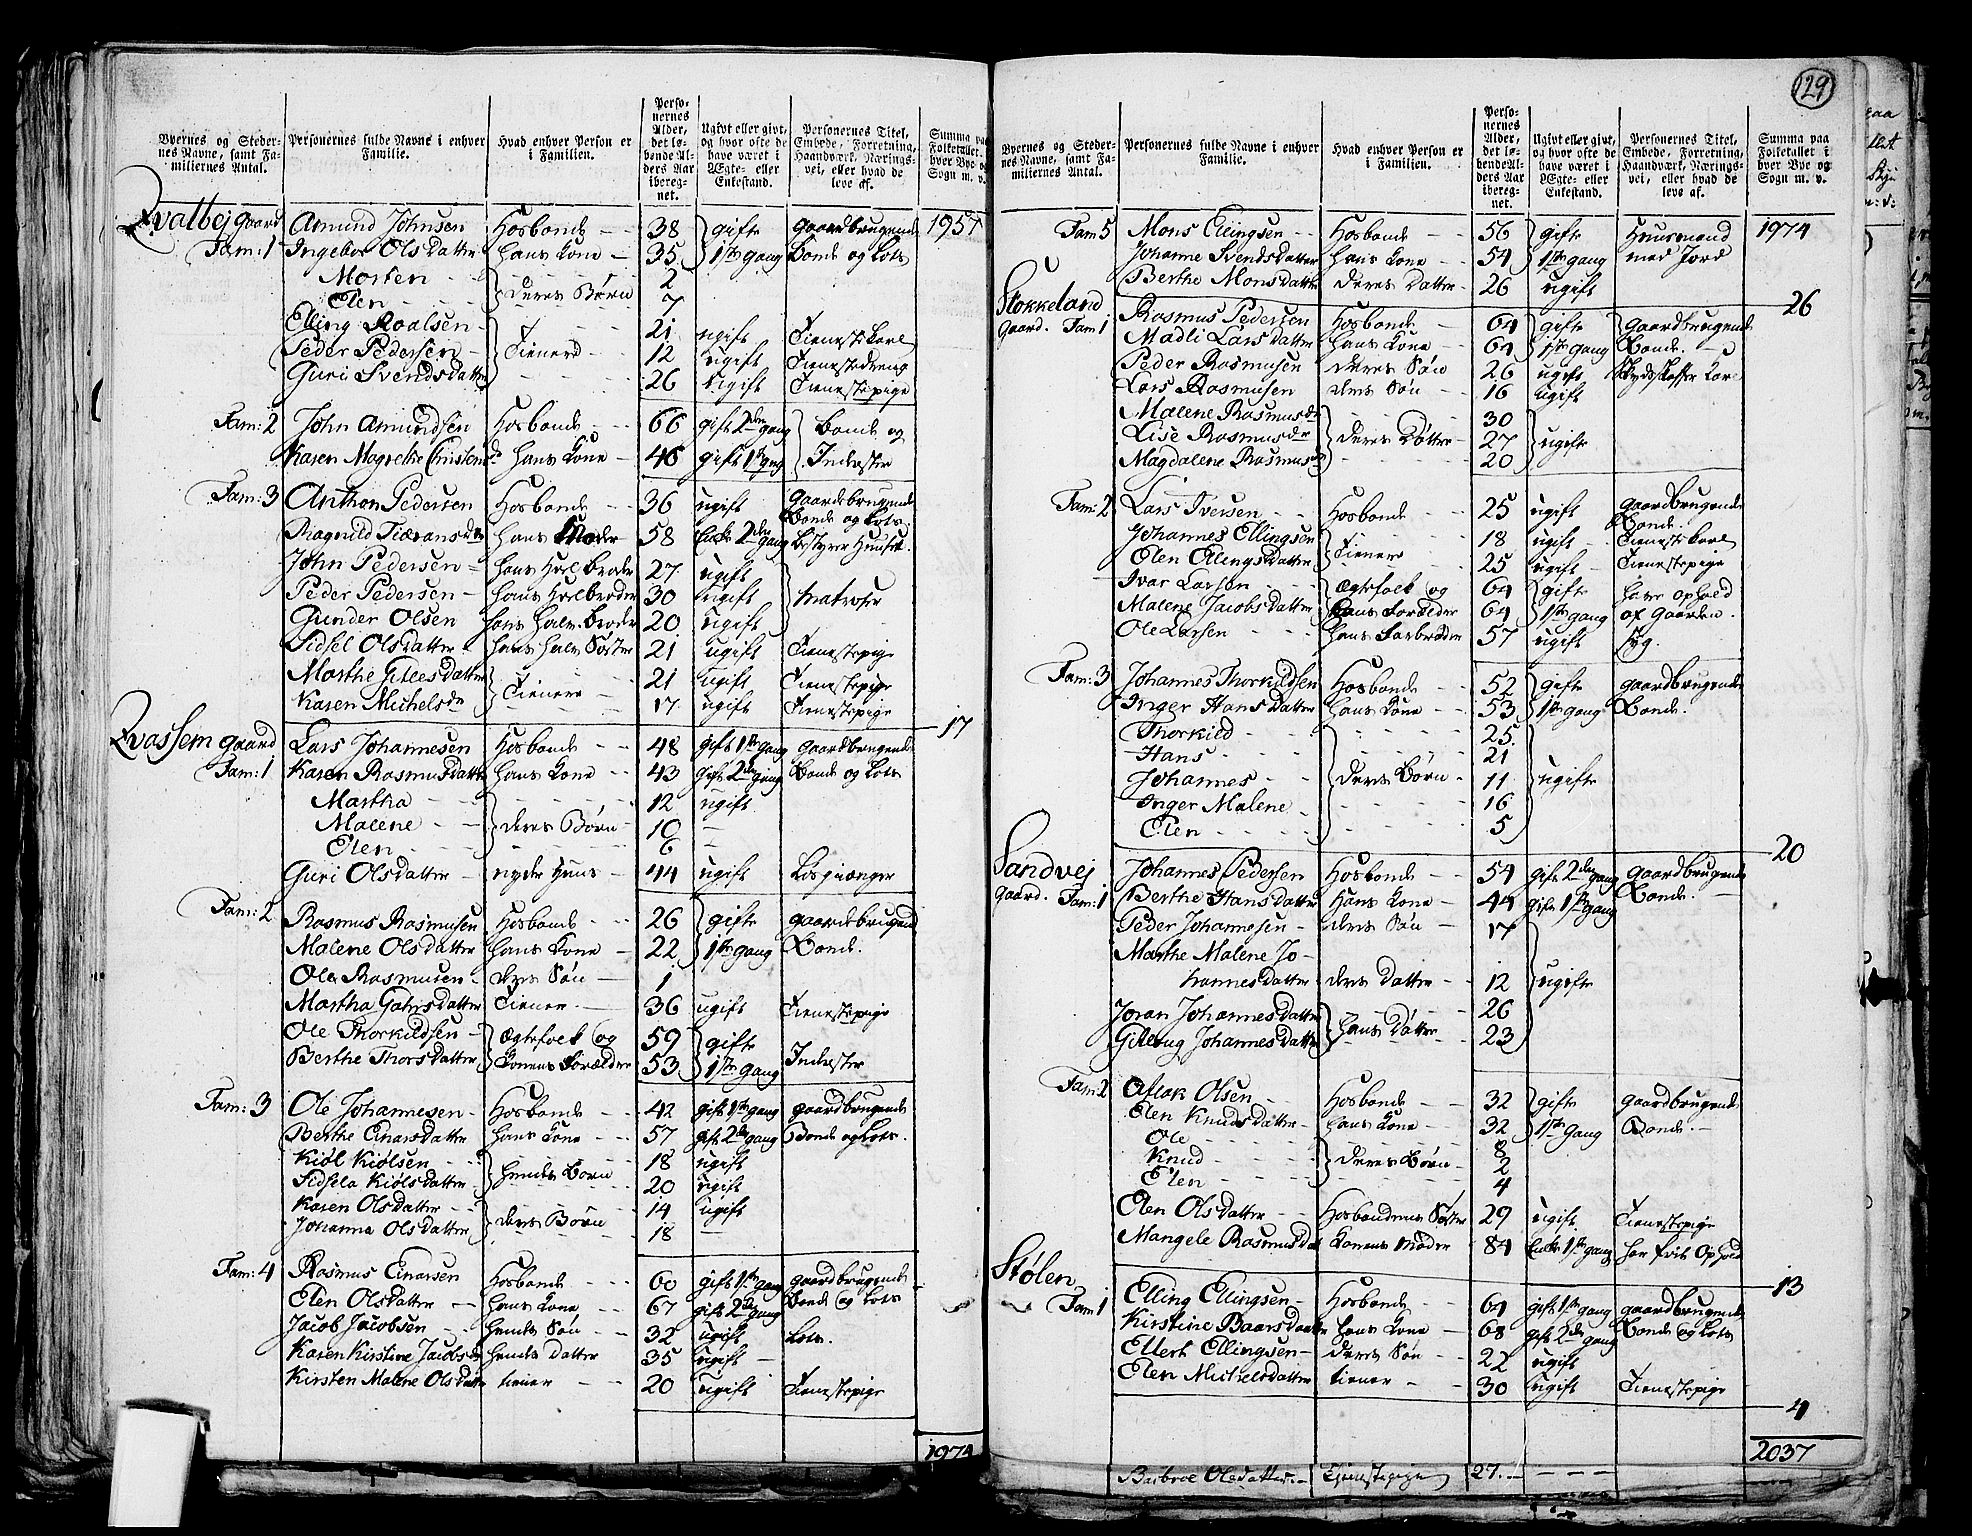 Byernes og Stedernes Navne, samt Familiernes Antal.
Personernes fulde Navne i enhver Familie.
Hvad enhver Person er i Familien.
Personernes Alder, det løbende Alders Aar iberegnet.
Ugivt eller givt, og hvor ofte de have været i Ægte- eller Enkestand.
Personernes Titel, Embede, Forretning, Haandværk, Næringsvei, eller hvad de leve af.
Summa paa Folketallet i hver Bye og Sogn m. v.
gaard Amund Johnsen Hosbonde 38 gifte gaardbrugende 1957
Fam: 1 Ingebor Olsdatter hans Kone 35 1ste gang Bonde og Lots
Morten 2
Elen deres Børn 7
Elling Roalsen 21 ugift Tienestekarl
Peder Pedersen Tienere 12 ugift Tienestedreng
Guri Svendsdatter 26 ugift Tienestepige
Fam: 2 John Amundsen Hosbonde 66 gift 2den gang Bonde og
Karen Magrethe hans Kone 46 gift 1ste gang Inderster
Fam: 3 Anthon Pedersen Hosbonde 36 ugift gaardbrugende Bonde og Lots
Ragnild hans Moder 58 Enke 2den gang bestyrer Huuset
John Pedersen hans Broder 27 ugift
Peder Pedersen hans 30 ugift Matroser
Gunder Olsen hans Halv Broder 20 ugift
Sidsel Olsdatter hans Halv Søster 21 ugift Tienestepige
Marthe 21 ugift Tienestepige
Karen Michelsdr Tienere 17 ugift Tienestepige
17
gaard Lars Johannesen Hosbonde 48 gift 1ste gang gaardbrugende
Fam: 1 Karen Rasmusdatter hans Kone 43 gift 2den gang Bonde og Lots
Martha 12 ugift
Malene deres Børn 10
Elen 6
Guri Olsdatter nyder Huus 44 ugift
Fam: 2 Rasmus Rasmusen Hosbonde 26 gifte gaardbrugend
Malene Olsdatter hans Kone 22 1ste gang Bonde.
Ole Rasmusen deres Søn 1
Martha Tiener 36 ugift Tienestepige
Ole Thorkildsen Ægtefolk og 59 gifte
Berthe Thorsdatter Konens Forældre 53 1ste gang Inderster
Fam: 3 Ole Johannesen Hosbonde 42 gift 1ste gang gaardbrugende
Berthe Einarsdatter hans Kone 57 gift 2den gang Bonde og Lots.
Kiøl Kiølsen 18 ugift
Sidsela Kiølsdatter hendes Børn 20 ugift
Karen Olsdatter 14 ugift
Johanna Olsdatter deres Børn 18
Fam: 4 Rasmus Einarsen Hosbonde 60 gift 1ste gang gaardbrugende
Elen Olsdatter hans Kone 67 gift 2den gang Bonde og Lots
Jacob Jacobsen hendes Søn 32 ugift Lots.
Karen Kirstine Jacobsdr hendes Datter 35 ugift
Kirsten Malene Olsdatter tiener 20 ugift Tienestepige
1974
129
Byernes og Stedernes Navne, samt Familiernes Antal.
Personernes fulde Navne i enhver Familie.
Hvad enhver Person er i Familien.
Personernes Alder, det løbende Alders Aar iberegnet.
Ugivt eller givt, og hvor ofte de have været i Ægte- eller Enkestand.
Personernes Titel, Embede, Forretning, Haandværk, Næringsvei, eller hvad de leve af.
Summa paa Folketallet i hver Bye og Sogn m. v.
Fam 5 Mons Ellingsen Hosbonde 56 gifte Huusmand 1974
Johanne Svendsdatter hans Kone 54 1ste gang med Jord
Berthe Monsdatter deres Datter 26 ugift
26
Stokkeland Rasmus Pedersen Hosbonde 64 gifte gaardbrugende
gaard. Fam 1 Madli Larsdatter hans Kone 64 1ste gang Bonde.
Peder Rasmusen deres Søn 26 ugift
Lars Rasmusen deres Søn 16 ugift
Malene Rasmusdr 30
Lise Rasmusdr deres Døttre 27 ugifte
Magdalene Rasmusdr 20
Fam: 2 Lars Iversen Hosbonde 25 ugift gaardbrugende Bonde.
Johannes Ellingsen 18 ugift Tienestekarl
Elen Ellingsdatter Tienere 25 ugift Tienestepige
Ivar Larsen Ægtefolk og 64 gifte have ophold
Malene Jacobsdatter hans Forældre 64 1ste gang af Gaarden.
Ole Larsen hans Farbroder 57 ugift syg.
Fam: 3 Johannes Thorkildsen Hosbonde 52 gifte gaardbrugende
Inger Hansdatter hans Kone 53 1ste gang Bonde.
Thorkild 25
Hans 21
Johannes deres Børn 11 ugifte
Inger Malene 16
Elen 5
20
Sandvej Johannes Pedersen Hosbonde 54 gift 2den gang gaardbrugende
gaard. Fam: 1 Berthe Hansdatter Hans Kone 44 gift 1ste gang Bonde.
Peder Johannesen deres Søn 17
Marthe Malene Jo-
hannesdatter deres Datter 12 ugifte
Joran Johannesdatter 26
Johannesdatter hans Døttre 23
Fam: 2 Aslak Olsen Hosbonde 32 gifte gaardbrugende
Elen Knudsdatter hans Kone 32 1ste gang Bonde.
Ole 8
Knud deres Børn 2
Elen 4
Elen Olsdatter Hosbondens Søster 29 ugift Tienestepige
Mangele Rasmusdat Konens Moder 84 Enke 1ste gang har frit Ophold
13
Stølen Elling Ellingsen Hosbonde 64 gift 1ste gang gaardbrugende
Fam 1 Kirstine Baarsdatter hans Kone 68 gift 2den gang Bonde og Lots
Ellert Ellingsen deres Søn 22 ugift
Elen Michelsdatter tiener 30 ugift Tienestepige
4
2037
Barbroe Olesdatter Tjenestepige 27.